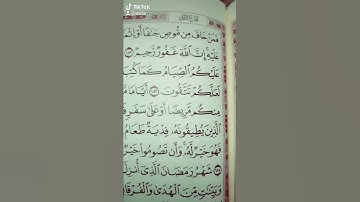 TikTok
فَمَنْ خَافَ مِن مُّوصٍ جَنَفًا أَوْ إِثْمًا
عَلَيْهِ إِنَّ اللَّهَ غَفُورٌ رَّحِيمٌ
عَلَيْكُمُ الصِّيَامُ كَمَا كُتِبَ
لَعَلَّكُمْ تَتَّقُونَ ۝ أَيَّامًا
مِنكُم مَّرِيضًا أَوْ عَلَىٰ سَفَرٍ
الَّذِينَ يُطِيقُونَهُ فِدْيَةٌ طَعَامُ
فَهُوَ خَيْرٌ لَّهُ وَأَن تَصُومُوا خَيْرٌ
شَهْرُ رَمَضَانَ الَّذِي أُنزِلَ
وَبَيِّنَاتٍ مِّنَ الْهُدَىٰ وَالْفُرْقَانِ